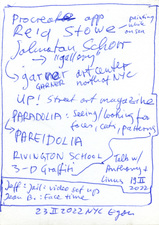 Procreate app
painting while on sea
Reid Stowe
Johnatan Schorr
gallery
garner art center
GARNER north of NYC
UP! Street art magazine
PARADOLIA: seeing/looking for
faces, cats, patterns
PAREIDOLIA
RIVINGTON SCHOOL
3-D Graffiti
Talk w/
Anthony +
Linus 19 II
2022
Jeff: Jail: video set up
Jean B.: Face time
23 II 2022 NYC